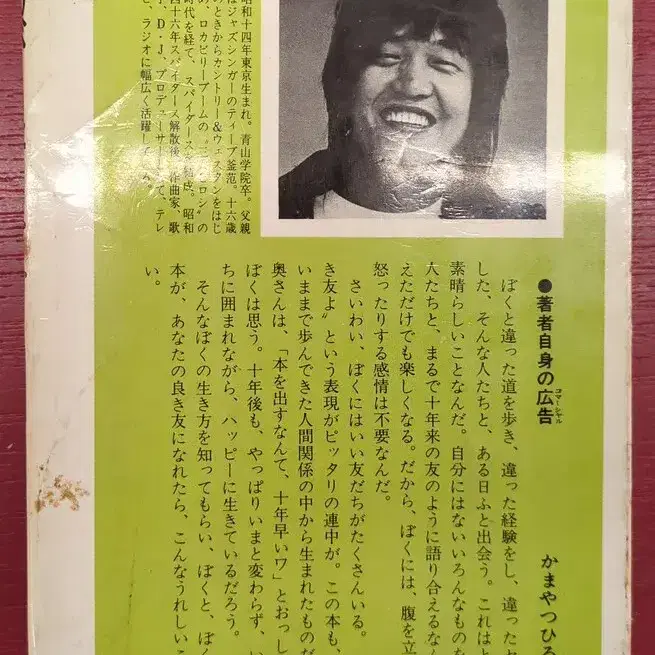 昭和十四年東京生まれ。青山学院卒。父親
はジャズシンガーのティーブ釜范。十六歳
のときからカントリー&ウェスタンをはじ
め、ロカビリーブームの〝三人ヒロシ〟の
時代を経て、スパイダース結成。昭和
四十六年スパイダース解散後、作曲家、歌
手、D・J、プロデューサーとして、テレ
ビ、ラジオに幅広く活躍して
●著者自身の広告
コマーシャル
かまやつひろ
ぼくと違った道を歩き、違った経験をし、違った
した、そんな人たちと、ある日ふと出会う。これは
素晴らしいことなんだ。自分にはないいろんなものを
人たちと、まるで十年来の友のように語り合えるなん
えただけでも楽しくなる。だから、ぼくには、腹を立
怒ったりする感情は不要なんだ。
さいわい、ぼくにはいい友だちがたくさんいる。
き友よ〟という表現がピッタリの連中が。この本も、
いままで歩んできた人間関係の中から生まれたものだ
奥さんは、「本を出すなんて、十年早いワ」とおっし
ぼくは思う。十年後も、やっぱりいまと変わらず、い
ちに囲まれながら、ハッピーに生きているだろう。
そんなぼくの生き方を知ってもらい、ぼくと、ぼく
本が、あなたの良き友になれたら、こんなうれしいこ
い。